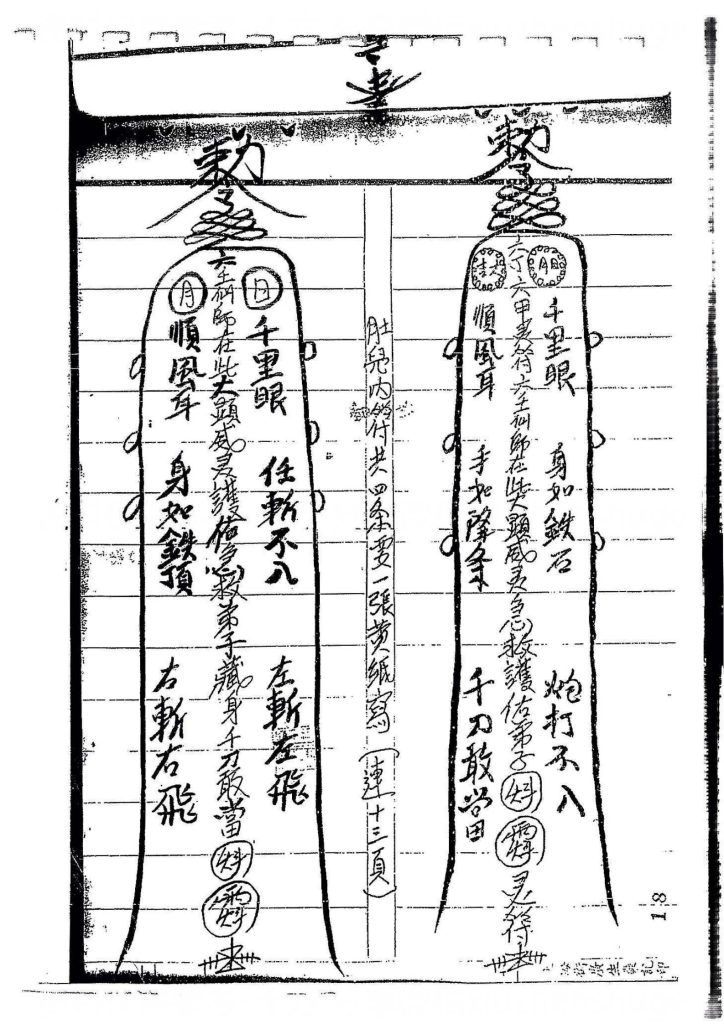 勅令
六丁六甲灵符六壬仙師在此大顯威灵急救護佑弟子
灵符
日月
千里眼
身如鉄石
炮打不入
順風耳
手如降
千刀敢當
肚兒內
付共四条要一張黄紙寫(連十三頁)
勅令
六壬仙師在此大顯威灵護佑急救弟子藏身千刀敢當
日
千里眼
任斬不入
左斬左飛
月
順風耳
身如鉄頂
右斬右飛
18